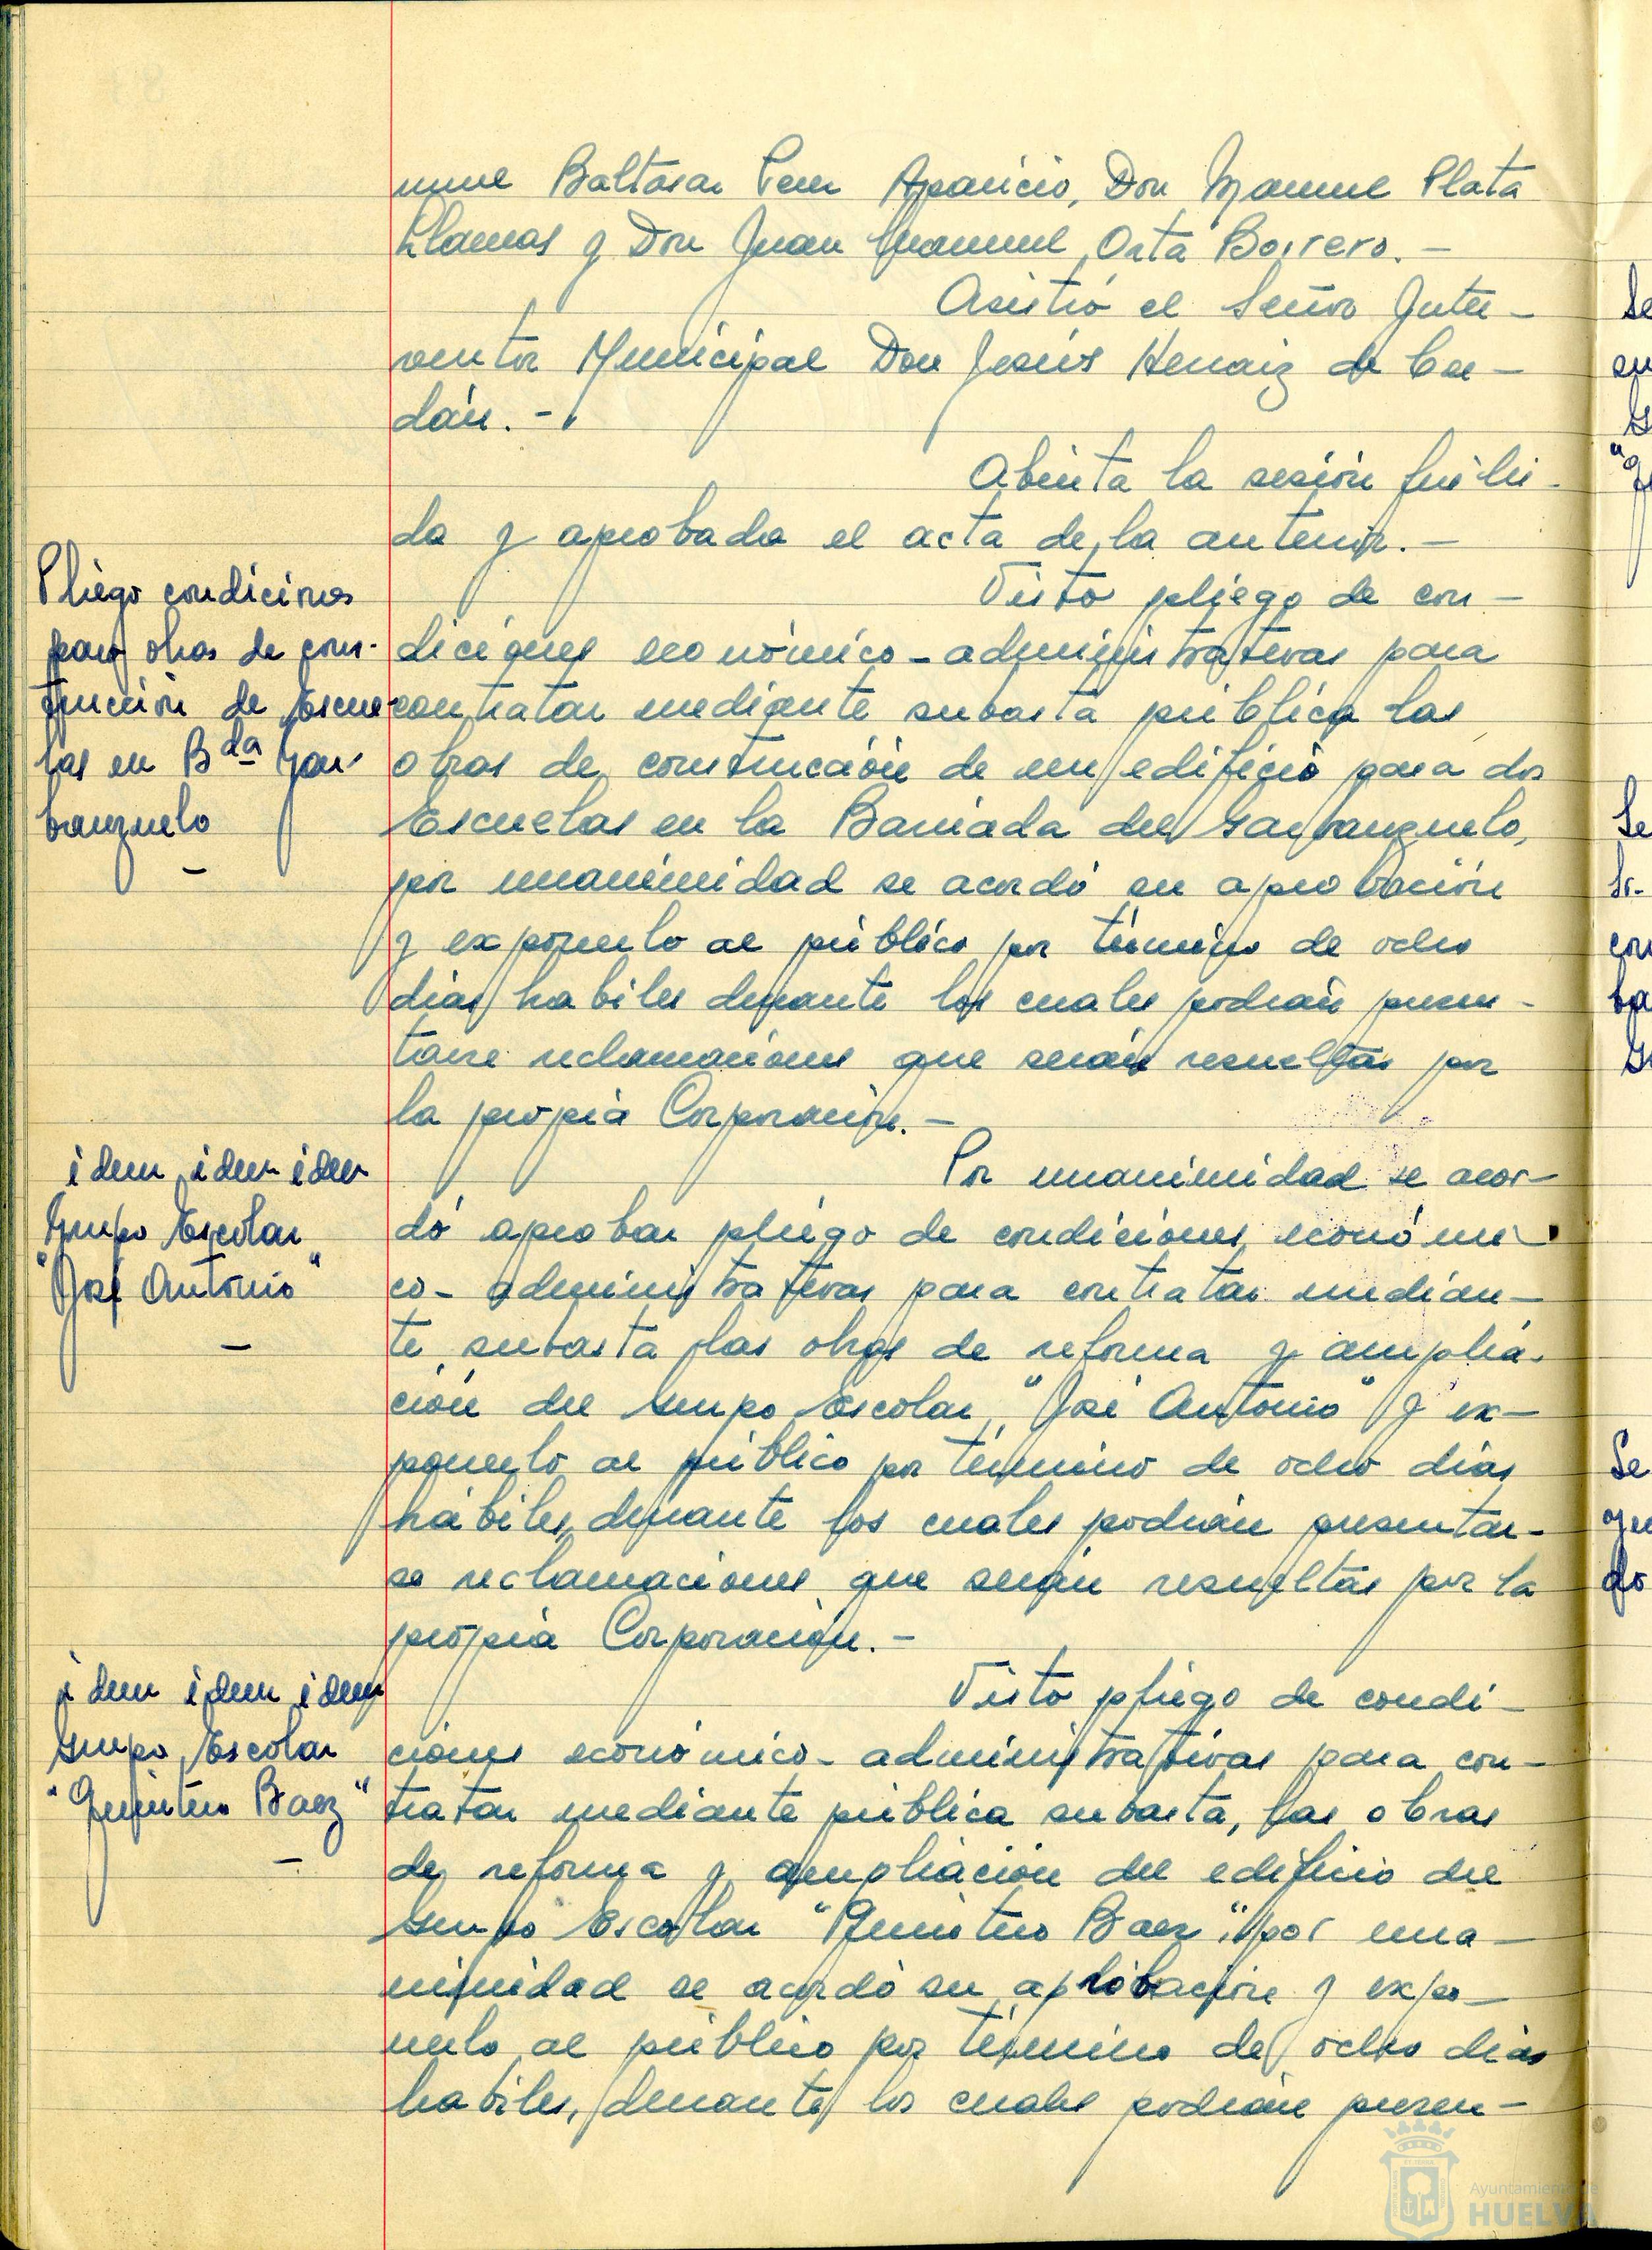 nuel Baltasar Pein Aparicio, Don Manuel Plata
Llamas y Don Juan Manuel Orta Borrero.-
Asistió el Señor Inter-
ventor Municipal Don Jesús Henaiz de
dán.-
Abierta la sesión fué lei-
da y aprobada el acta de la anterior.-
Visto pliego de con-
Pliego condiciones
para obras de cons-
trucción de Escue-
las en Bda Gar-
banzuelo
-
diciones económico-administrativas para
contratar mediante subasta pública las
obras de construcción de un edificio para dos
Escuelas en la Barriada del Garbanzuelo,
por unanimidad se acordó su aprobación
y exponerlo al público por término de ocho
dias habiles durante los cuales podrán presen-
tarse reclamaciones que serán resueltas por
la propia Corporación.-
Por unanimidad se acor-
idem idem idem
Grupo Escolar
"José Antonio"
-
dó aprobar pliego de condiciones económi-
co-administrativas para contratar median-
te subasta las obras de reforma y amplia-
ción del Grupo Escolar "José Antonio" y ex-
ponerlo al público por término de ocho dias
hábiles, durante los cuales podrán presentar-
se reclamaciones que serán resueltas por la
propia Corporación.-
Visto pliego de condi-
idem idem idem
Grupo Escolar
"Quintero Baez"
-
ciones económico-administrativas para con-
tratar mediante pública subasta, las obras
de reforma y ampliación del edificio del
Grupo Escolar "Quintero Baez", por una-
nimidad se acordó su aprobación y expo-
nerlo al público por término de ocho dias
habiles, durante los cuales podrán presen-
Ayuntamiento de
HUELVA